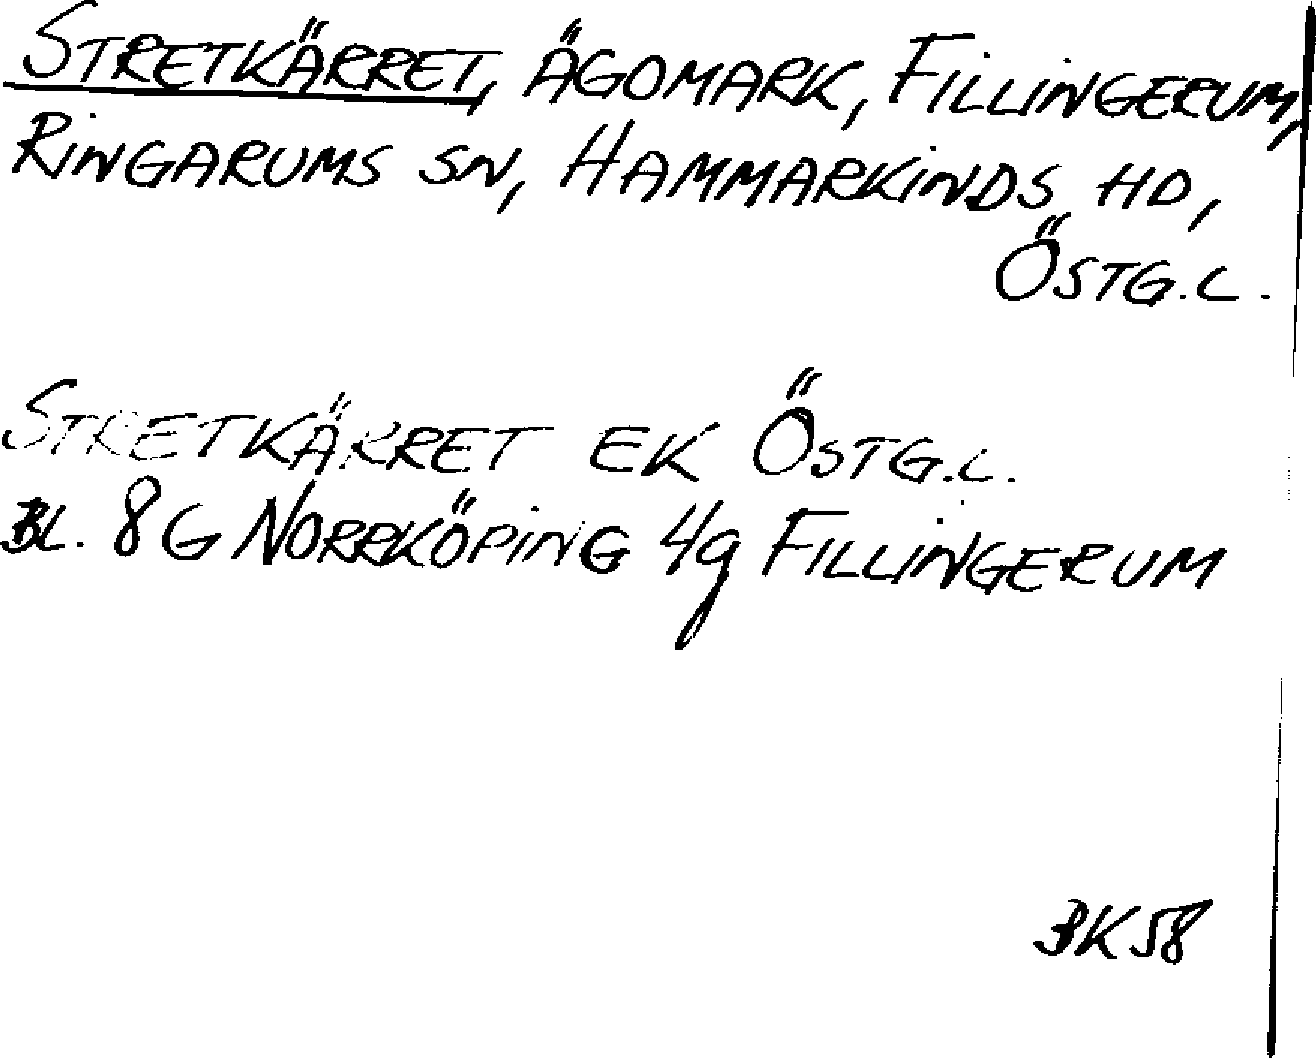 STRETKÄRRET, ÄGOMARK, FILLINGERUM,
RINGARUMS SN, HAMMARKINDS HD,
ÖSTG.L.
STRETKÄRRET EK ÖSTG.L.
BL. 8G NORRKÖPING 4g FILLINGERUM
BK58